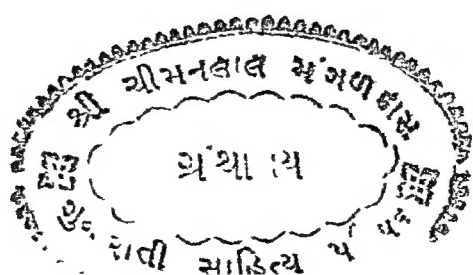 શ્રી ચીમનલાલ મંગળદાસ
ગ્રંથાલય
ગુજરાતી સાહિત્ય